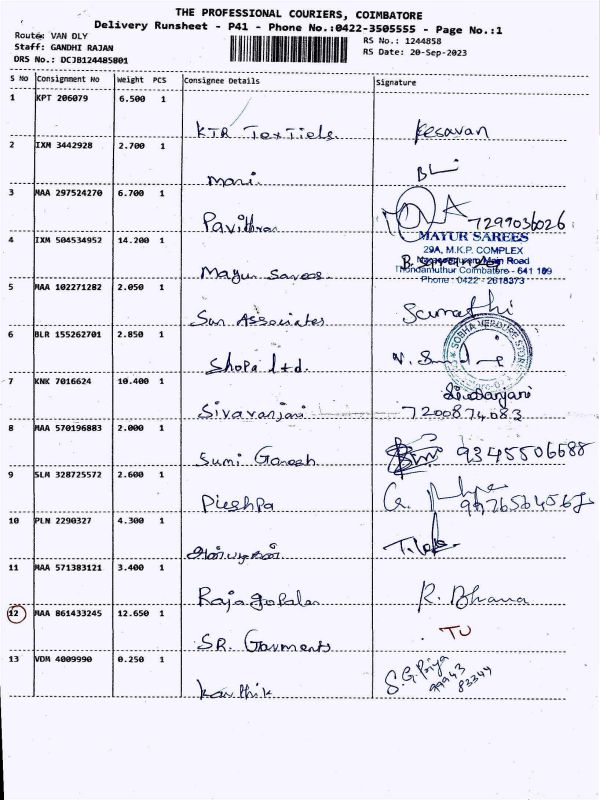 THE PROFESSIONAL COURIERS, COIMBATORE
Delivery Runsheet - P41 - Phone No.:0422-3505555 - Page No.:1
Route: VAN DLY
RS No.: 1244858
Staff: GANDHI RAJAN
RS Date: 20-Sep-2023
DRS No.: DCJB124485801
S No Consignment No Weight PCS Consignee Details Signature
1 KPT 206079 6.500 1
KTR Textiels Kesavan
2 IXM 3442928 2.700 1
Mani
3 MAA 297524270 6.700 1
Pavithran 7299036026
4 IXM 504534952 14.200 1
MAYUR SAREES
29A, M.K.P. COMPLEX
Main Road
Mayur Sarees
Thondamuthur Coimbatore - 641 109
Phone : 0422 - 2618373
5 MAA 102271282 2.050 1
Sun Associates Sumathi
6 BLR 155262701 2.850 1
SOBHA VERDURE
Shopa ltd.
7 KNK 7016624 10.400 1
Sivaranjani
Sivaranjani 7200874083
8 MAA 570196883 2.000 1
Sumi Ganesh 9345506688
9 SLM 328725572 2.600 1
10 PLN 2290327 4.300 1
11 MAA 571383121 3.400 1
Rajagopalan R. Bhana
12 MAA 861433245 12.650 1
TU
SR. Garments
13 VDM 4009990 0.250 1
S.G.Priya
99943
83344
Karthik